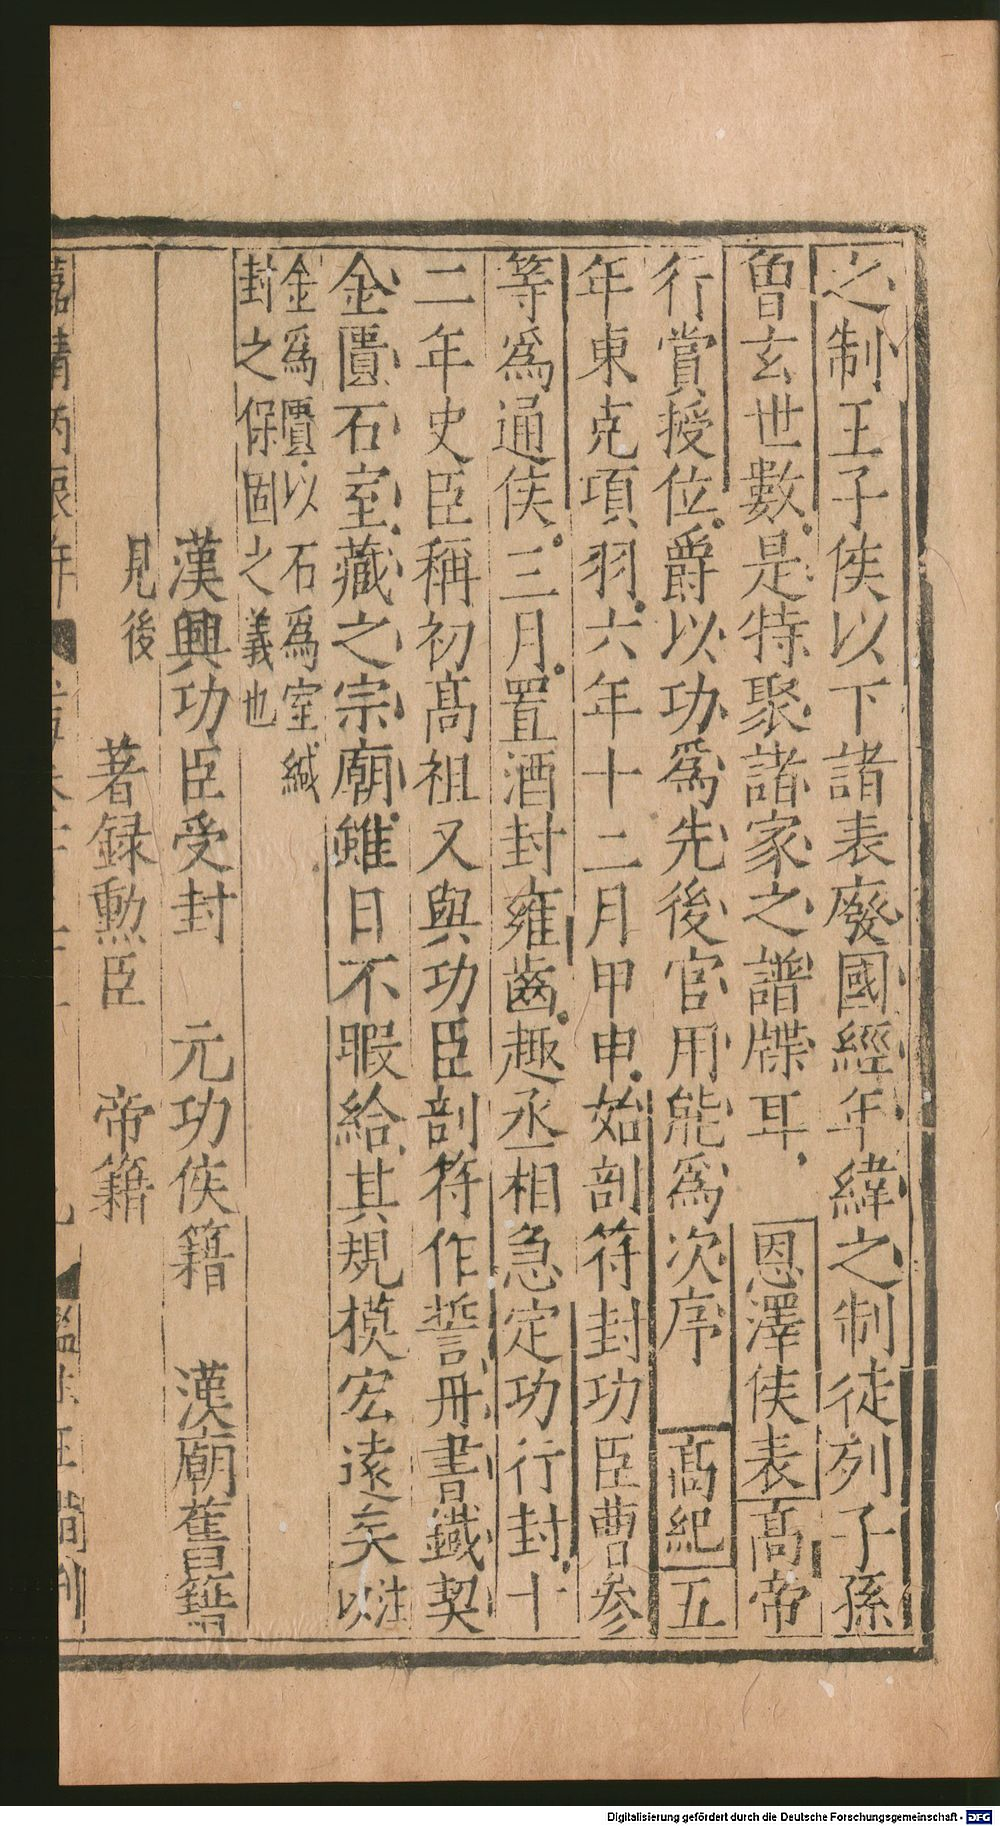 之制王子侯以下諸表廢國經年緯之制徒列子孫
曾玄世數是特聚諸家之譜牒耳恩澤侯表高帝
行賞授位爵以功爲先後官用能爲次序高紀五
年東克項羽六年十二月甲申始剖符封功臣曹參
等爲通侯三月置酒封雍齒趣丞相急定功行封十
二年史臣稱初高祖又與功臣剖符作誓丹書鐵契
金匱石室藏之宗廟雖日不暇給其規模宏遠矣注以
金爲匱以石爲室緘
封之保固之義也
漢興功臣受封 元功侯籍 漢廟舊籍
見後
著録勲臣 帝籍
嘉靖丙
Digitalisierung gefördert durch die Deutsche Forschungsgemeinschaft - DFG